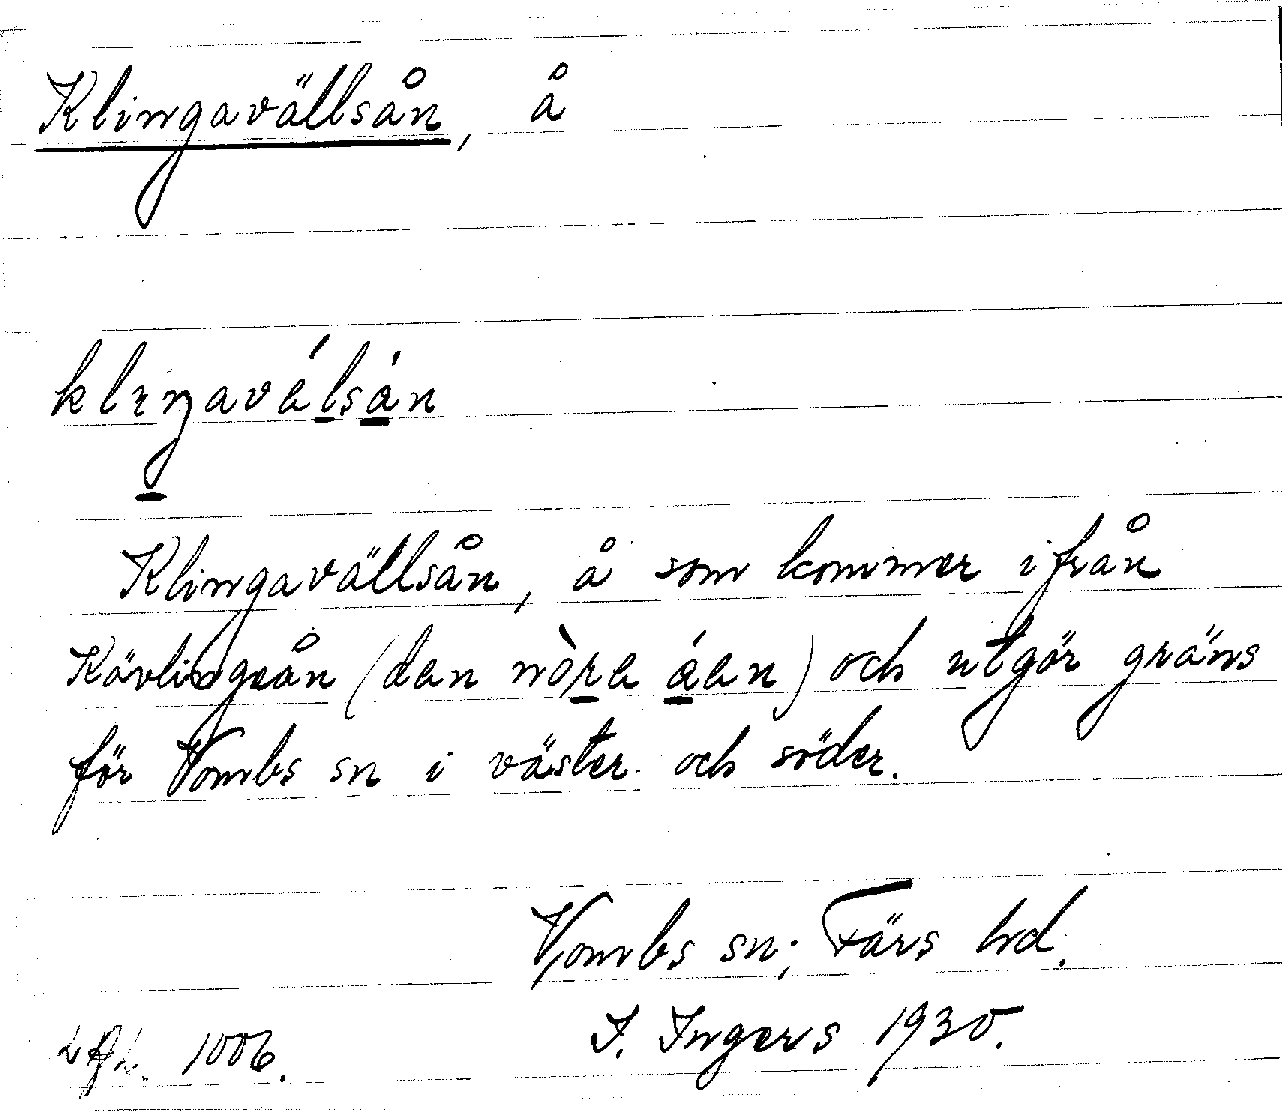 Klingavällsån, å
klıŋaválsån
Klingavällsån, å som kommer ifrån
Kävlingeån (den nòra áen) och utgör gräns
för Vombs sn i väster och söder.
Vombs sn; Färs hd.
I. Ingers 1930.
1006.